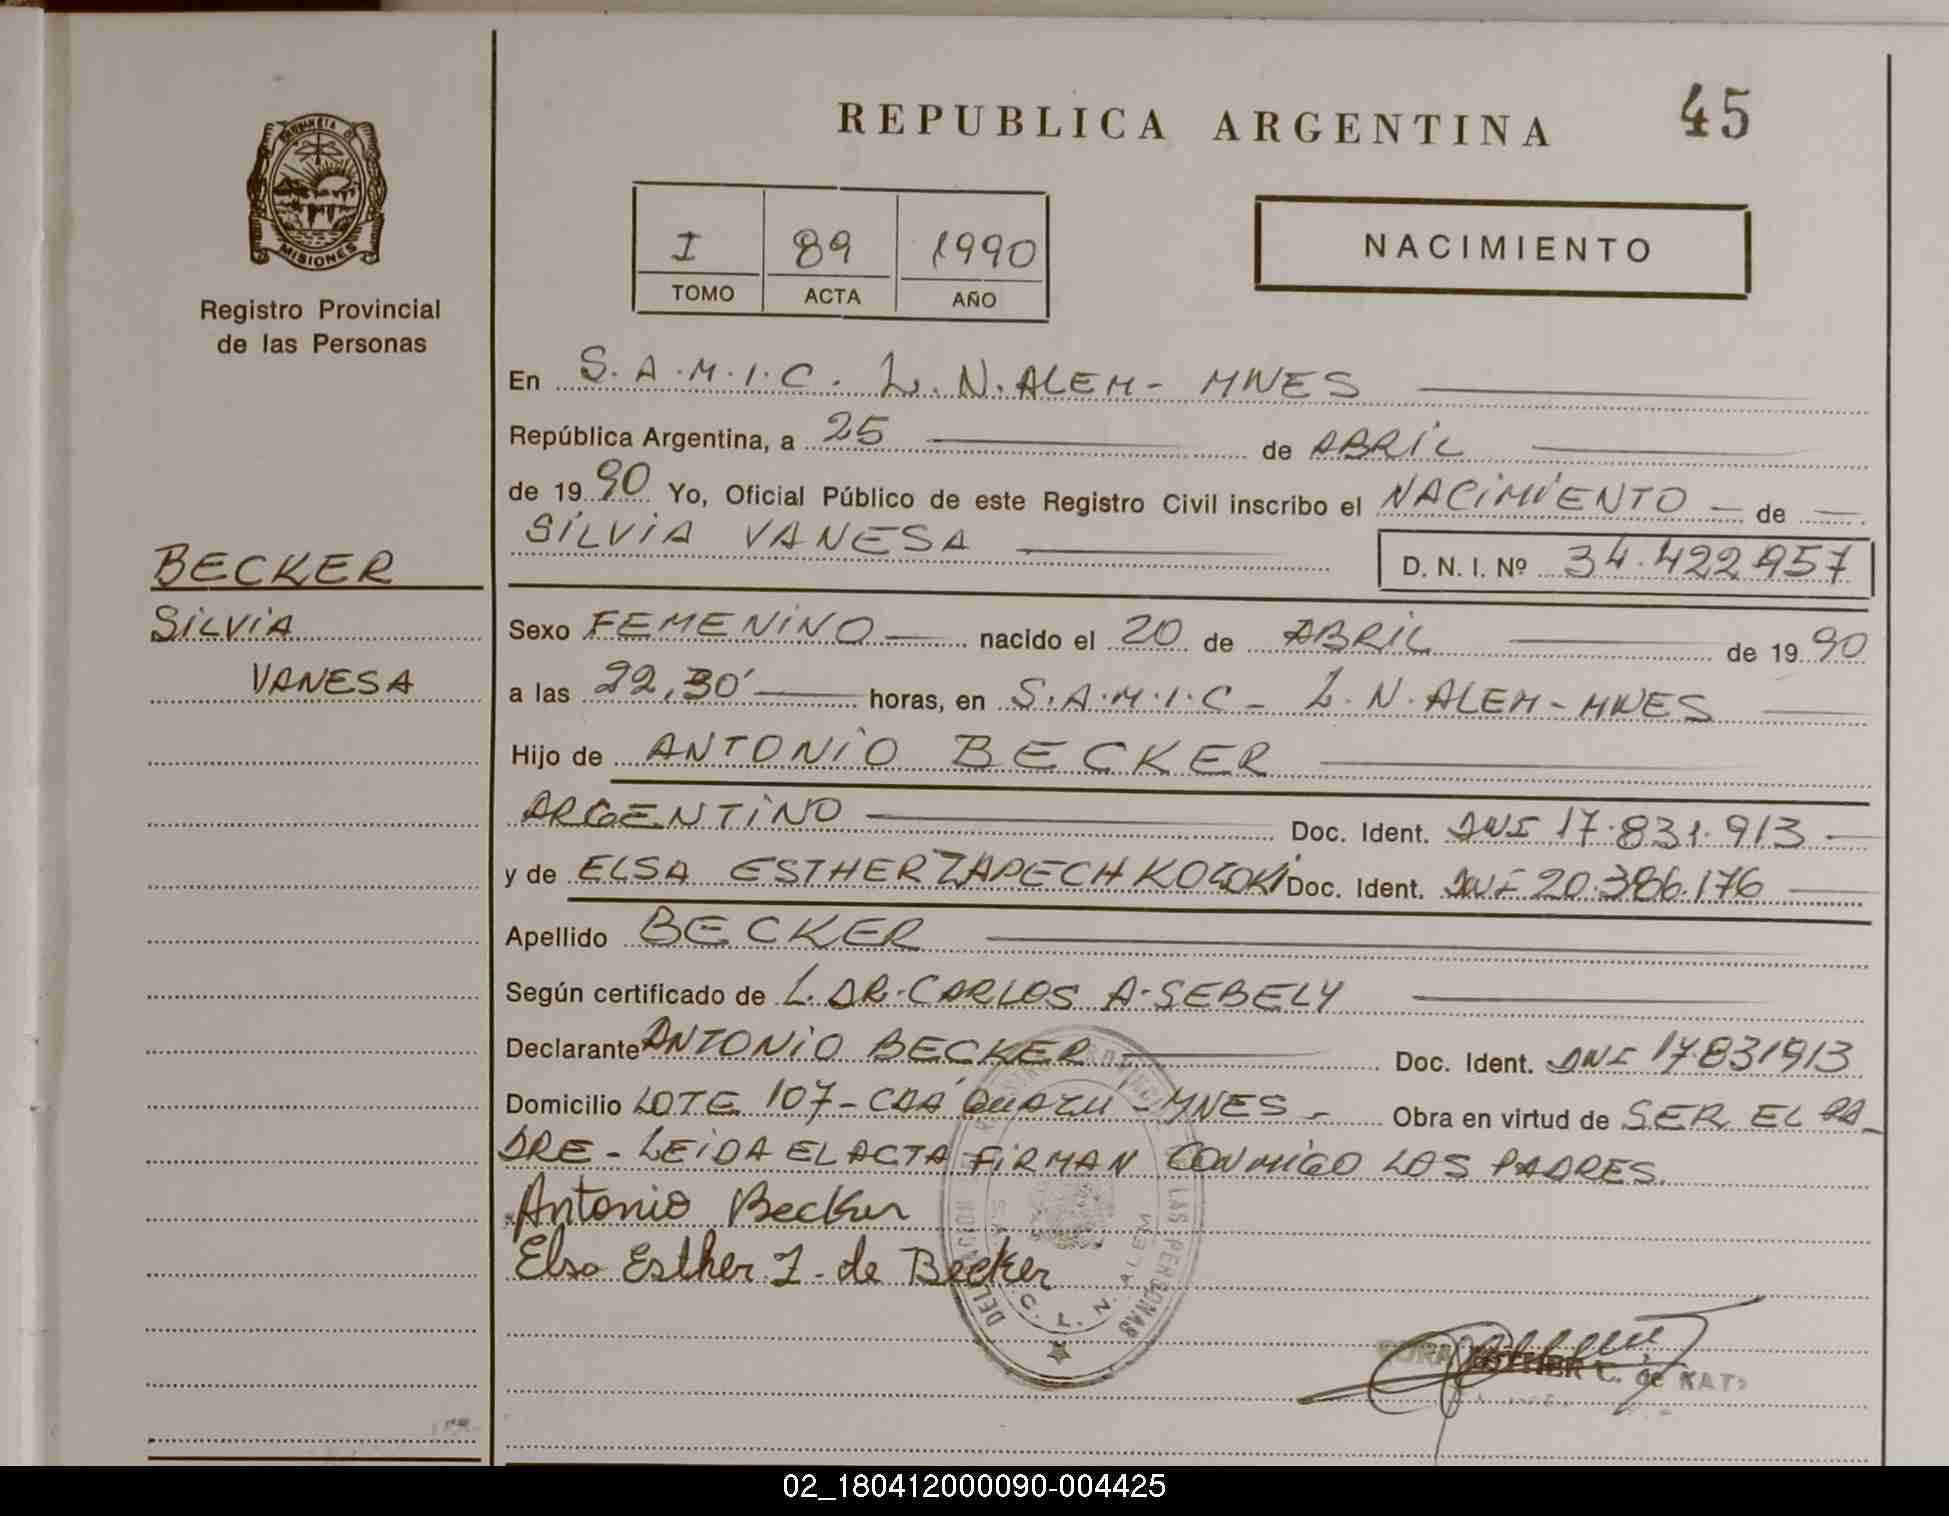 REPUBLICA ARGENTINA 45
PROVINCIA DE
MISIONES
Registro Provincial
de las Personas
I 89 1990
TOMO ACTA AÑO
NACIMIENTO
BECKER
SILVIA
VANESA
En S.A.M.I.C. L.N.ALEM- MNES
República Argentina, a 25 de ABRIL
de 1990 Yo, Oficial Público de este Registro Civil inscribo el NACIMIENTO de
SILVIA VANESA D. N. I. Nº 34.422.957
Sexo FEMENINO nacido el 20 de ABRIL de 1990
a las 22,30' horas, en S.A.M.I.C - L.N.ALEM-MNES
Hijo de ANTONIO BECKER
ARGENTINO Doc. Ident. DNI 17.831.913
y de ELSA ESTHER Doc. Ident. DNI 20.386.176
Apellido BECKER
Según certificado de L. DR. CARLOS A. SEBELY
Declarante ANTONIO BECKER Doc. Ident. DNI 17.831913
Domicilio LOTE 107- CAÁ GUAZÚ - MNES - Obra en virtud de SER EL PA-
DRE - LEIDA EL ACTA FIRMAN CONMIGO LOS PADRES.
Antonio Becker
Elsa Esther Z. de Becker
LAS PERSONAS
C. L. N. ALEM
ESTHER C. de KATZ
02_180412000090-004425